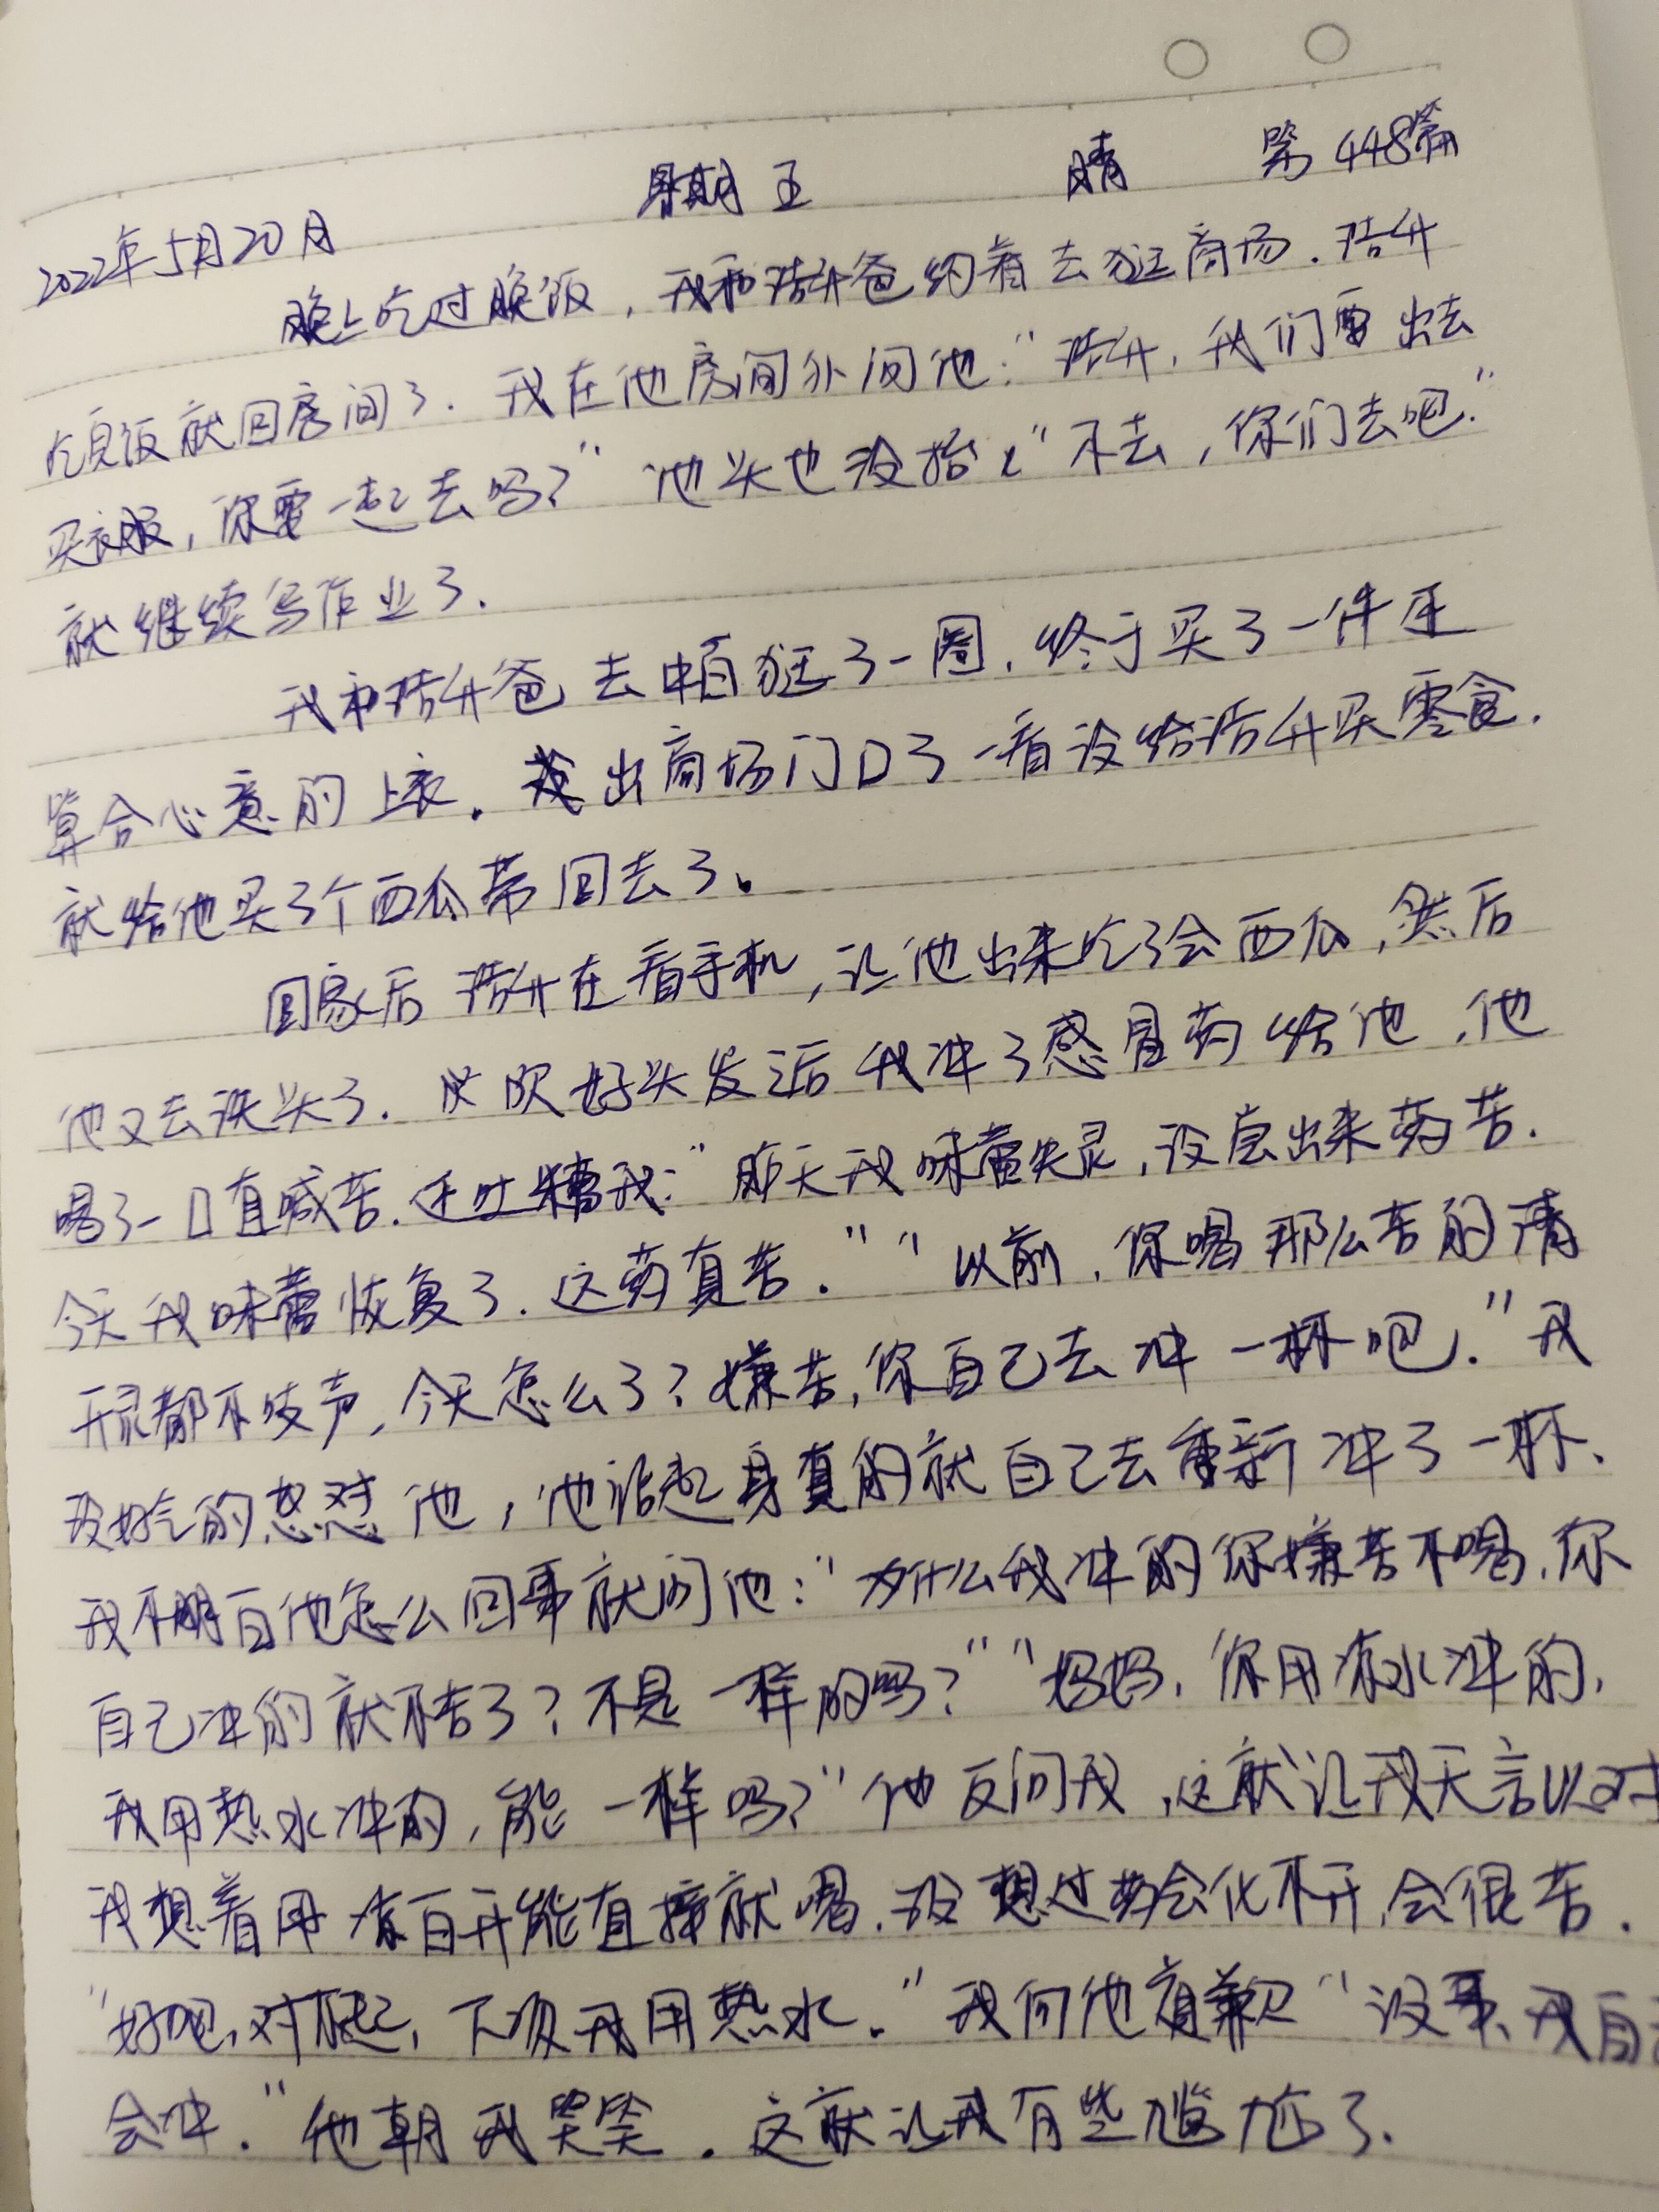 2022年5月20日 星期五 晴 第448篇
晚上吃过晚饭，我和浩升爸约着去逛商场．浩升
吃完饭就回房间了．我在他房间外问他：“浩升，我们要出去
买衣服，你要一起去吗？”他头也没抬“不去，你们去吧．”
就继续写作业了．
我和浩升爸去逛了一圈．终于买了一件还
算合心意的上衣．出商场门口了一看没给浩升买零食．
就给他买了个西瓜带回去了。
回家后浩升在看手机，让他出来吃了会西瓜，然后
他又去洗头了．吹好头发之后我冲了感冒药给他，他
喝了一口直喊苦．还吐糟我：“昨天我味蕾失灵，没尝出来药苦．
今天我味蕾恢复了．这药真苦．”“以前，你喝那么苦的清
开灵都不吱声，今天怎么了？嫌苦，你自己去冲一杯吧．”我
没好气的怼他，他起身真的就自己去重新冲了一杯、
我不明白他怎么回事就问他：“为什么我冲的你嫌苦不喝，你
自己冲的就不苦了？不是一样的吗？”“妈妈，你用凉水冲的，
我用热水冲的，能一样吗？”他反问我，这就让我无言以对
我想着用凉白开能直接就喝．没想过药会化不开，会很苦．
“好吧，对不起，下次我用热水．”我向他道歉“没事，我自己
会冲．”他朝我笑笑．这就让我有些尴尬了．